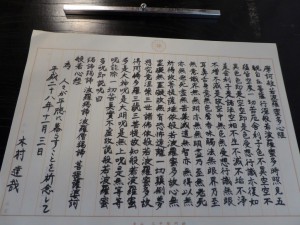 摩訶般若波羅蜜多心経
観自在菩薩行深般若波羅蜜多時照見五
蘊皆空度一切苦厄舎利子色不異空空不
異色色即是空空即是色受想行識亦復如
是舎利子是諸法空相不生不滅不垢不浄
不増不減是故空中無色無受想行識無眼
耳鼻舌身意無色声香味触法無眼界乃至
無意識界無無明亦無無明尽乃至無老死
亦無老死尽無苦集滅道無智亦無得以無
所得故菩提薩埵依般若波羅蜜多故心無
罣礙無罣礙故無有恐怖遠離一切顛倒夢
想究竟涅槃三世諸仏依般若波羅蜜多故
得阿耨多羅三藐三菩提故知般若波羅蜜
多是大神呪是大明呪是無上呪是無等等
呪能除一切苦真実不虚故説般若波羅蜜
多呪即説呪曰
羯諦羯諦 波羅羯諦 波羅僧羯諦 菩提薩婆訶
般若心経
為 人々が平穏に暮らすことを祈念して
平成二十八年十一月三日
木村達哉